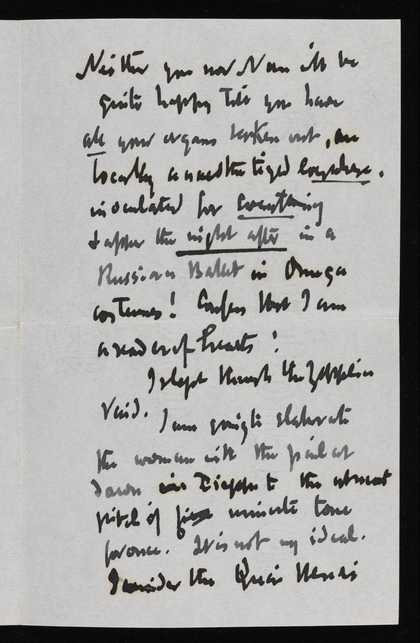 Neither you nor Nan will be
quite happy till you have
all your organs taken out, are
locally anaesthetized everywhere,
inoculated for Everything
& appear the night after in a
Russian Ballet in Omega
costumes! Confess that I am
a reader of hearts!
I slept through the Zeppelin
raid. I am going to elaborate
the woman with the pail at
dawn in Dieppe to the utmost
pitch of minute tone
for once. It is not my ideal.
I consider the Quai Henri